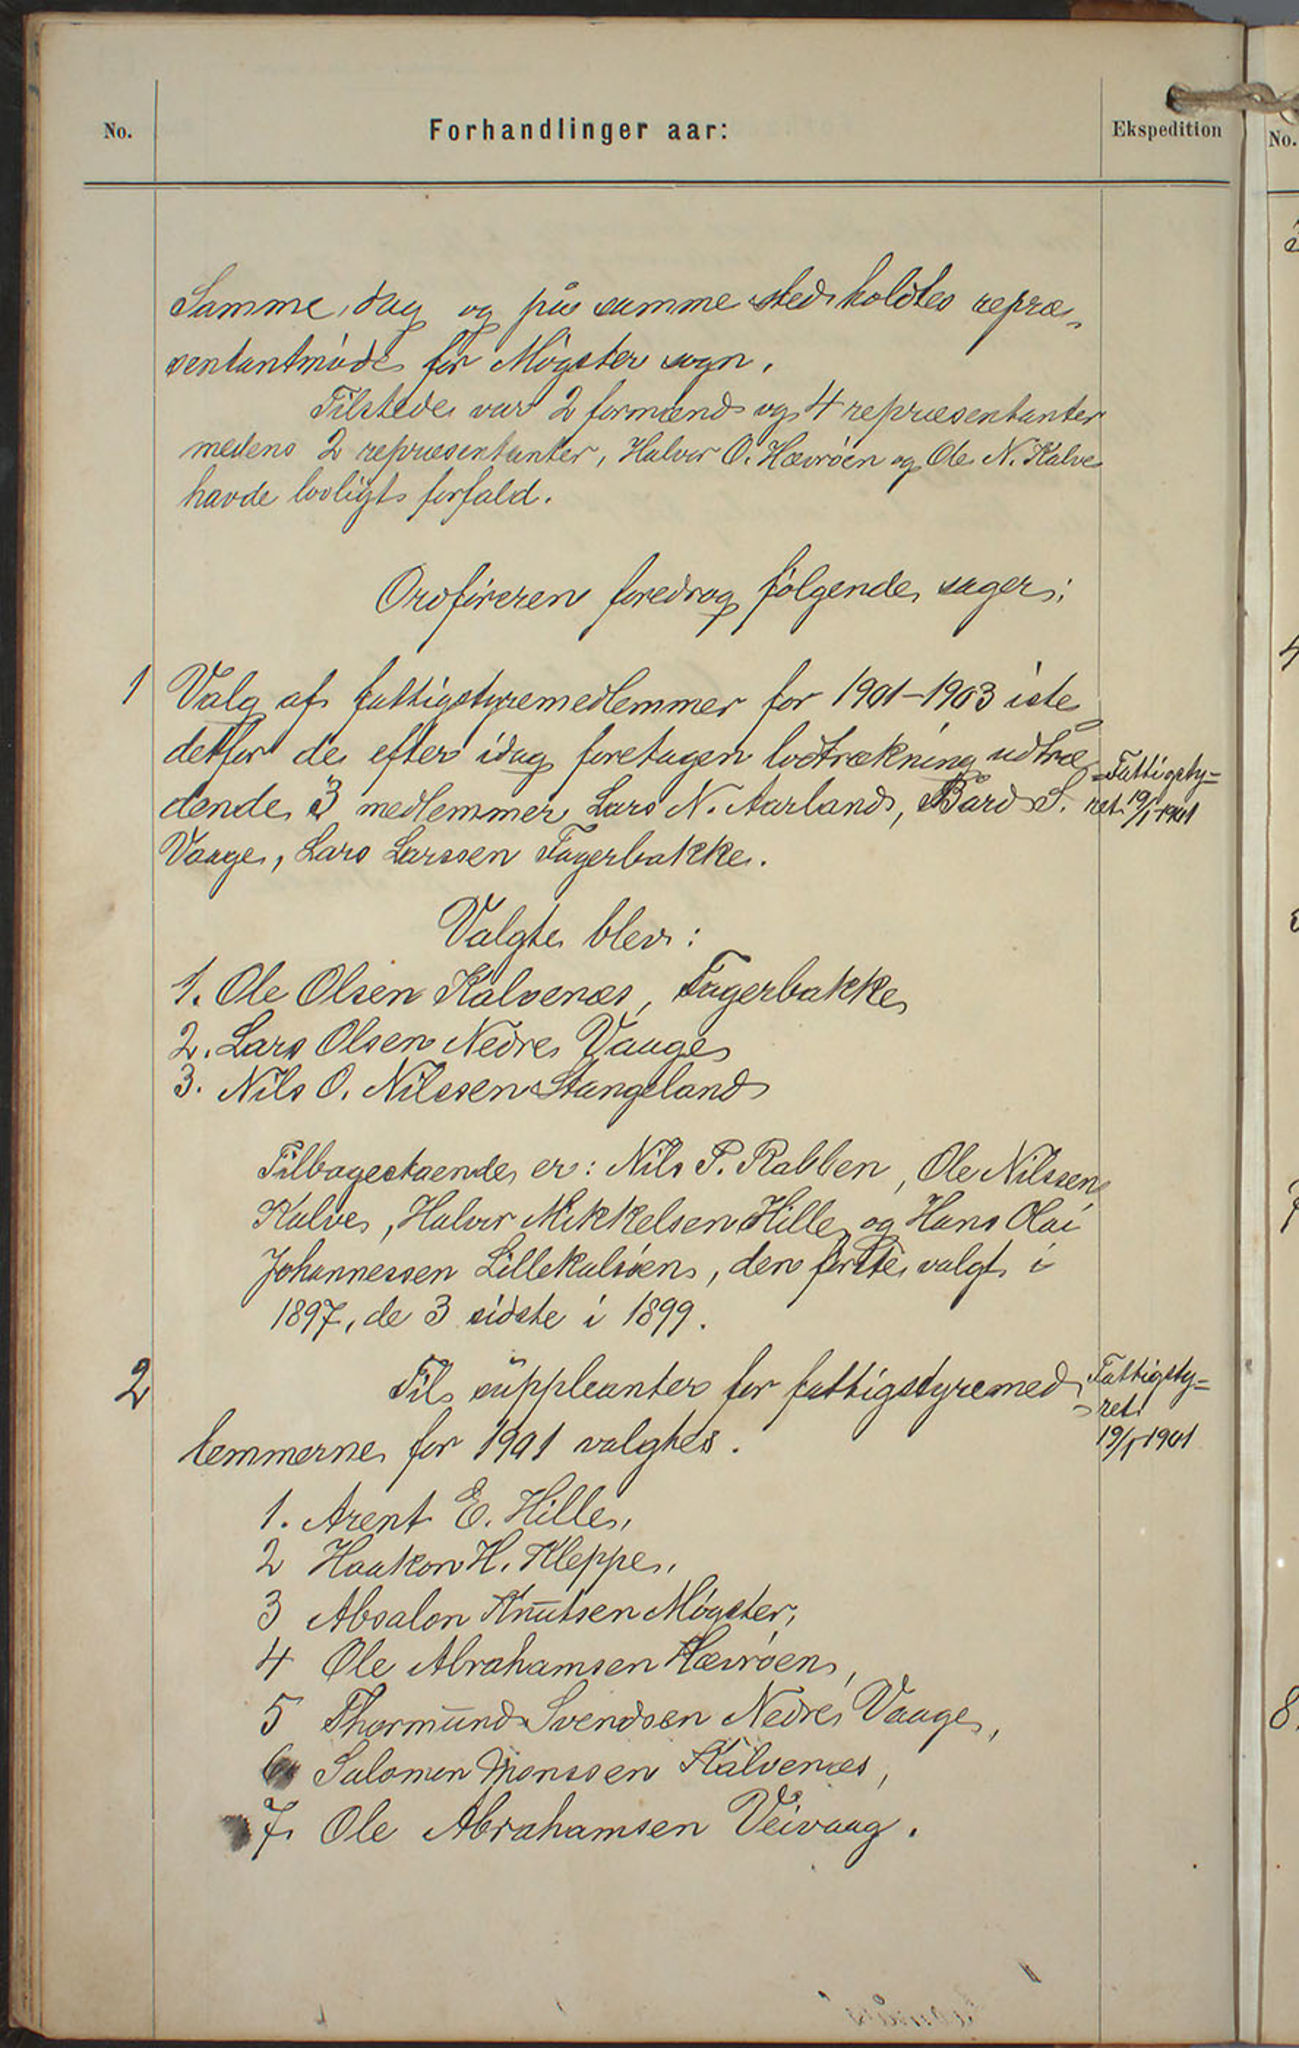 No.
Forhandlinger aar:
Ekspedition
No.
Samme dag og på samme sted holdtes repræ-
sentantmøde for Møgster sogn.
Tilstede var 2 formænd og 4 repræsentanter
medens 2 repræsentanter, Halvor O. Hævrøen og Ole N. Kalve
havde lovligt forfald.
Ordføreren foredrog følgende sager:
1 Valg af fattigstyremedlemmer for 1901-1903 iste
detfor de efter idag foretagen lodtrækning udtræ-
dende 3 medlemmer Lars N. Aarland, Bård S.
Vaage, Lars Larssen Fagerbakke.
Fattigsty=
ret 19/1 1901
Valgte blev:
1. Ole Olsen Kalvenæs, Fagerbakke
2. Lars Olsen Nedre Vaage
3. Nils O. Nilssen Stangeland
Tilbagestaende er: Nils P. Rabben, Ole Nilssen
Kalve, Halvor Mikkelsen Hille og Hans Olai
Johannessen Lillekalsøen, den første valgt i
1897, de 3 sidste i 1899.
2 Til suppleanter for fattigstyremed
lemmerne for 1901 valgtes.
Fattigsty=
ret
19/1 1901
1. Arent E. Hille,
2 Haakon H. Kleppe,
3 Absalon Knutsen Møgster,
4 Ole Abrahamsen Hævrøen,
5 Thormund Svendsen Nedre Vaage,
6 Salomon Monssen Kalvenæs,
7. Ole Abrahamsen Veivaag.
4
7
8.